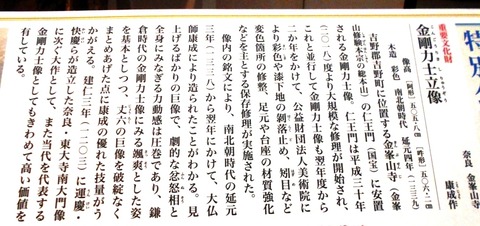 特別公
重要文化財
金剛力士立像
こんごうりきしりゅうぞう
像高 [阿形]五〇五・八㎝ [吽形]五〇六・二㎝
木造 彩色 南北朝時代 延元四年(一三三九)
奈良 金峯山寺
康成作
吉野郡吉野町に位置する金峯山寺(金峯
山修験本宗の総本山)の仁王門(国宝)に安置
される金剛力士像。仁王門は平成三十年
(二〇一八)度より大規模な修理が開始され、
これと並行して金剛力士像も翌年度から
二か年をかけて、公益財団法人美術院に
より彩色や漆下地の剝落止め、矧目など
変色箇所の修整、足元や台座の材質強化
などを主とする保存修理が実施された。
像内の銘文により、南北朝時代の延元
三年(一三三八)から翌年にかけて、大仏
師康成により造られたことがわかる。見
上げるばかりの巨像で、劇的な忿怒相と
全身にみなぎる力動感は圧巻であり、鎌
倉時代の金剛力士像にみる颯爽とした姿
を基本としつつ、丈六の巨像を破綻なく
まとめあげた点に康成の優れた技量がう
かがえる。建仁三年(一二〇三)に運慶・
快慶らが造立した奈良・東大寺南大門像
に次ぐ大作として、また当代を代表する
金剛力士像としてもきわめて高い価値を
有している。